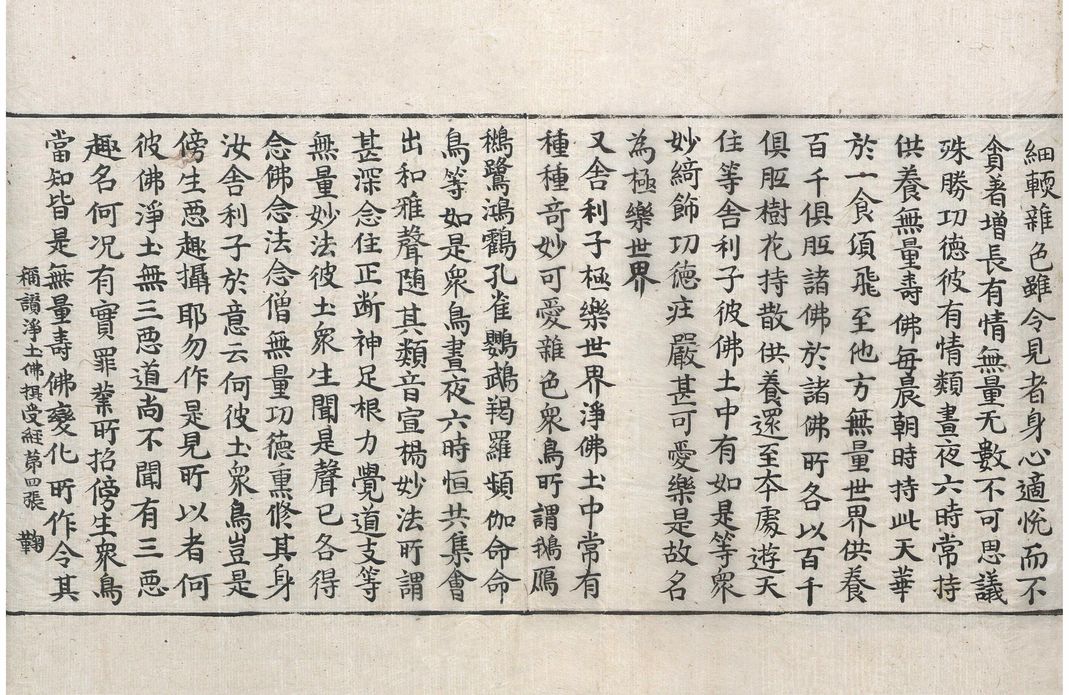 細輭雜色雖令見者身心適悅而不
貪著增長有情無量无數不可思議
殊勝功德彼有情類晝夜六時常持
供養無量壽佛每晨朝時持此天華
於一食頃飛至他方無量世界供養
百千俱胝諸佛於諸佛所各以百千
俱胝樹花持散供養還至本處遊天
住等舍利子彼佛土中有如是等衆
妙綺飾功德莊嚴甚可愛樂是故名
為極樂世界
又舍利子極樂世界淨佛土中常有
種種奇妙可愛雜色衆鳥所謂鵝鴈
鶖鷺鴻鶴孔雀鸚鵡羯羅頻伽命命
鳥等如是衆鳥晝夜六時恒共集會
出和雅聲随其類音宣楊妙法所謂
甚深念住正断神足根力覺道支等
無量妙法彼土衆生聞是聲已各得
念佛念法念僧無量功德熏修其身
汝舍利子於意云何彼土衆鳥豈是
傍生惡趣攝耶勿作是見所以者何
彼佛淨土無三惡道尚不聞有三惡
趣名何况有實罪業所招傍生衆鳥
當知皆是無量壽佛變化所作令其
稱讃淨土佛攝受經苐四張 鞠